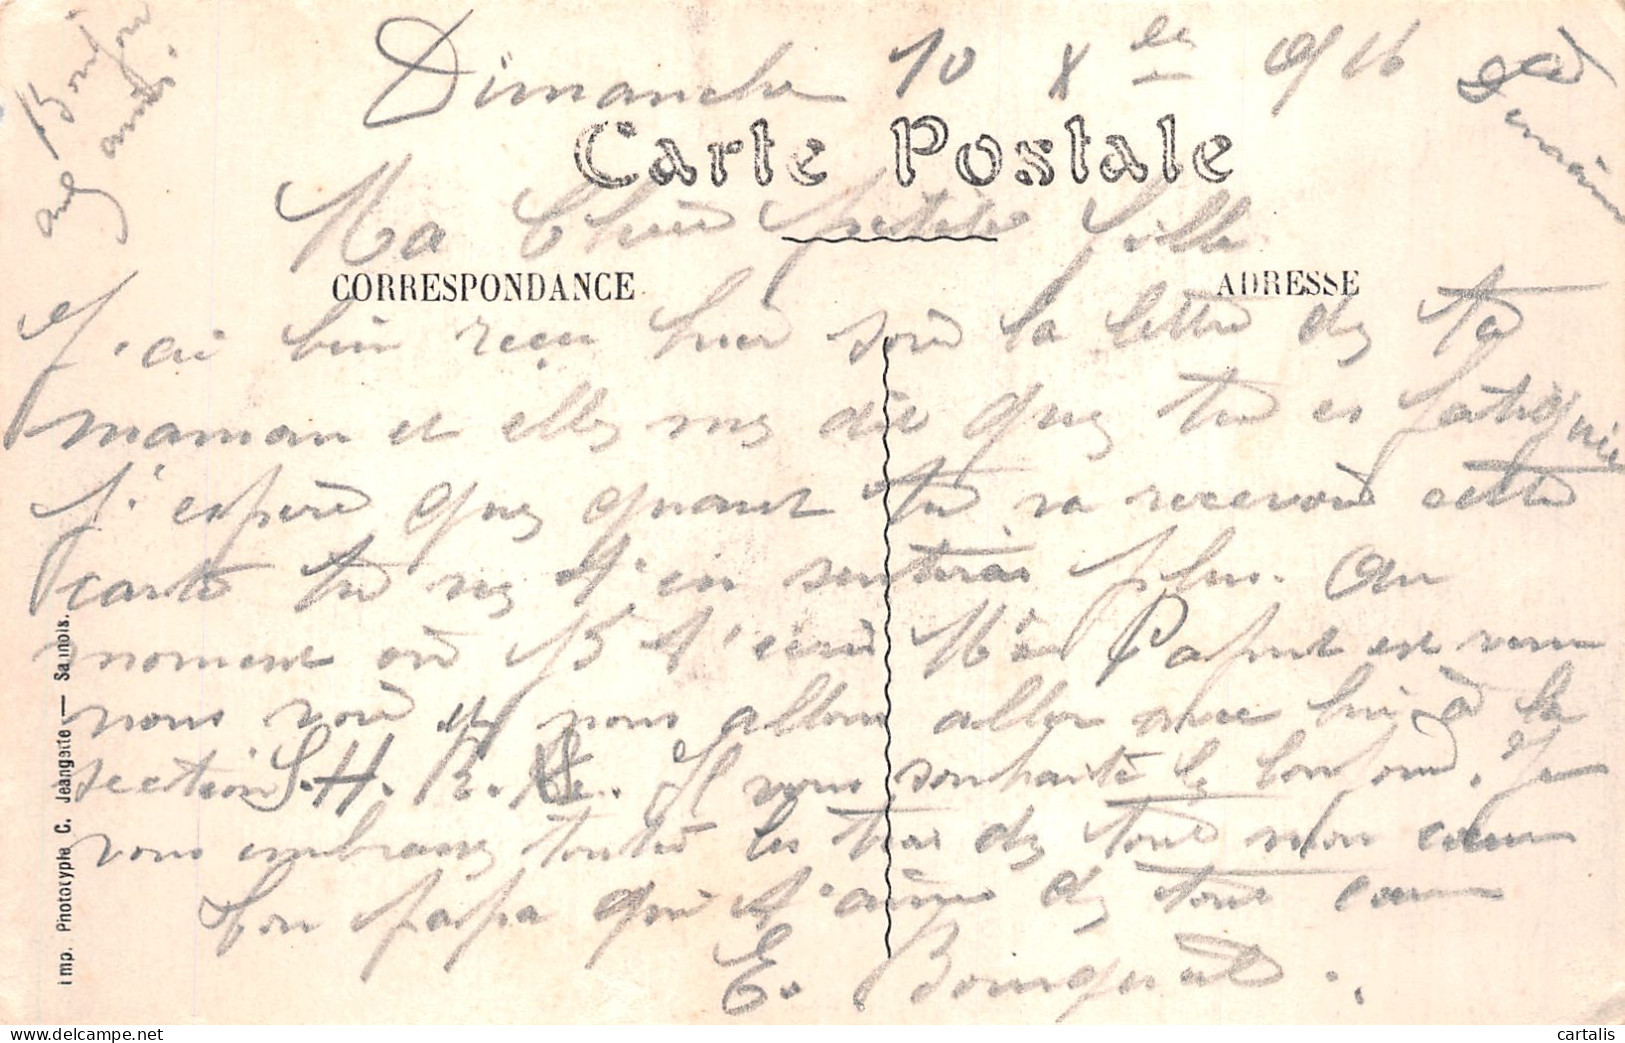 Dimanche 10 Xbre 916
Bonjour
aux amis.
Carte Postale
Ma Chere petite fille
CORRESPONDANCE
ADRESSE
J'ai bien reçu hier soir la lettre de ta
maman et elle me dit que tu es fatiguie
J'espère que quant tu va recevoir cette
carte tu ne t'en sentiras plus. Au
moment où je t'écris Mr Paput est venu
nous voir et nous allons aller avec lui à la
section S.H.R. Il vous souhaite le bonjour. Je
vous embrasse toute les trois de tout mon cœur
Ton papa qui t'aime de tout cœur
E. Bourguat.
imp. Phototypie C. Jeangette — Samois.
cartalis
delcampe.net